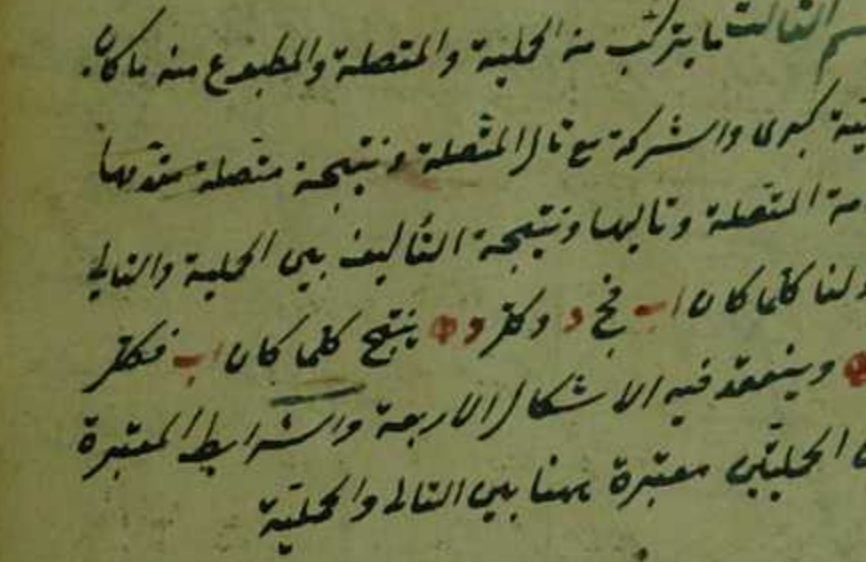 الثالث ما يتركب من الحملية والمتصلة والمطبوع منه ما كان
كبرى والشركة مع تالى المتصلة ونتيجة متصلة مقدمها
المتصلة وتاليها ونتيجة التأليف بين الحملية والتالى
كلما كان ا ب فج د وكل د ه ينتج كلما كان ا ب فكل
وينعقد فيه الاشكال الاربعة والشرايط المعتبرة
الحمليتين معتبرة ههنا بين التالى والحملية